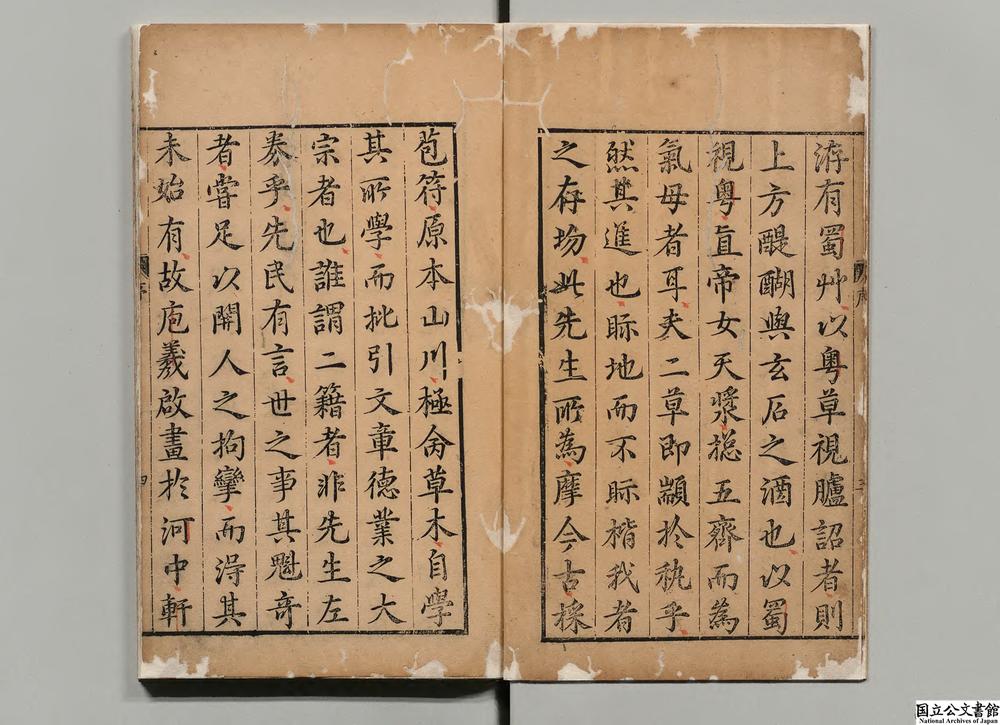 游有蜀艸以粤草視臚詔者則
上方醍醐與玄石之酒也以蜀
視粤直帝女天漿揔五齊而為
氣母者耳夫二草即顓於秇乎
然其進也眎地而不眎楷我者
之存場此先生所為摩今古採
苞符原本山川極命草木自學
其所學而批引文章德業之大
宗者也誰謂二籍者非先生左
券乎先民有言世之事其魁奇
者嘗足以開人之拘攣而得其
未始有故庖羲啟畫於河中軒
序
四
国立公文書館
National Archives of Japan